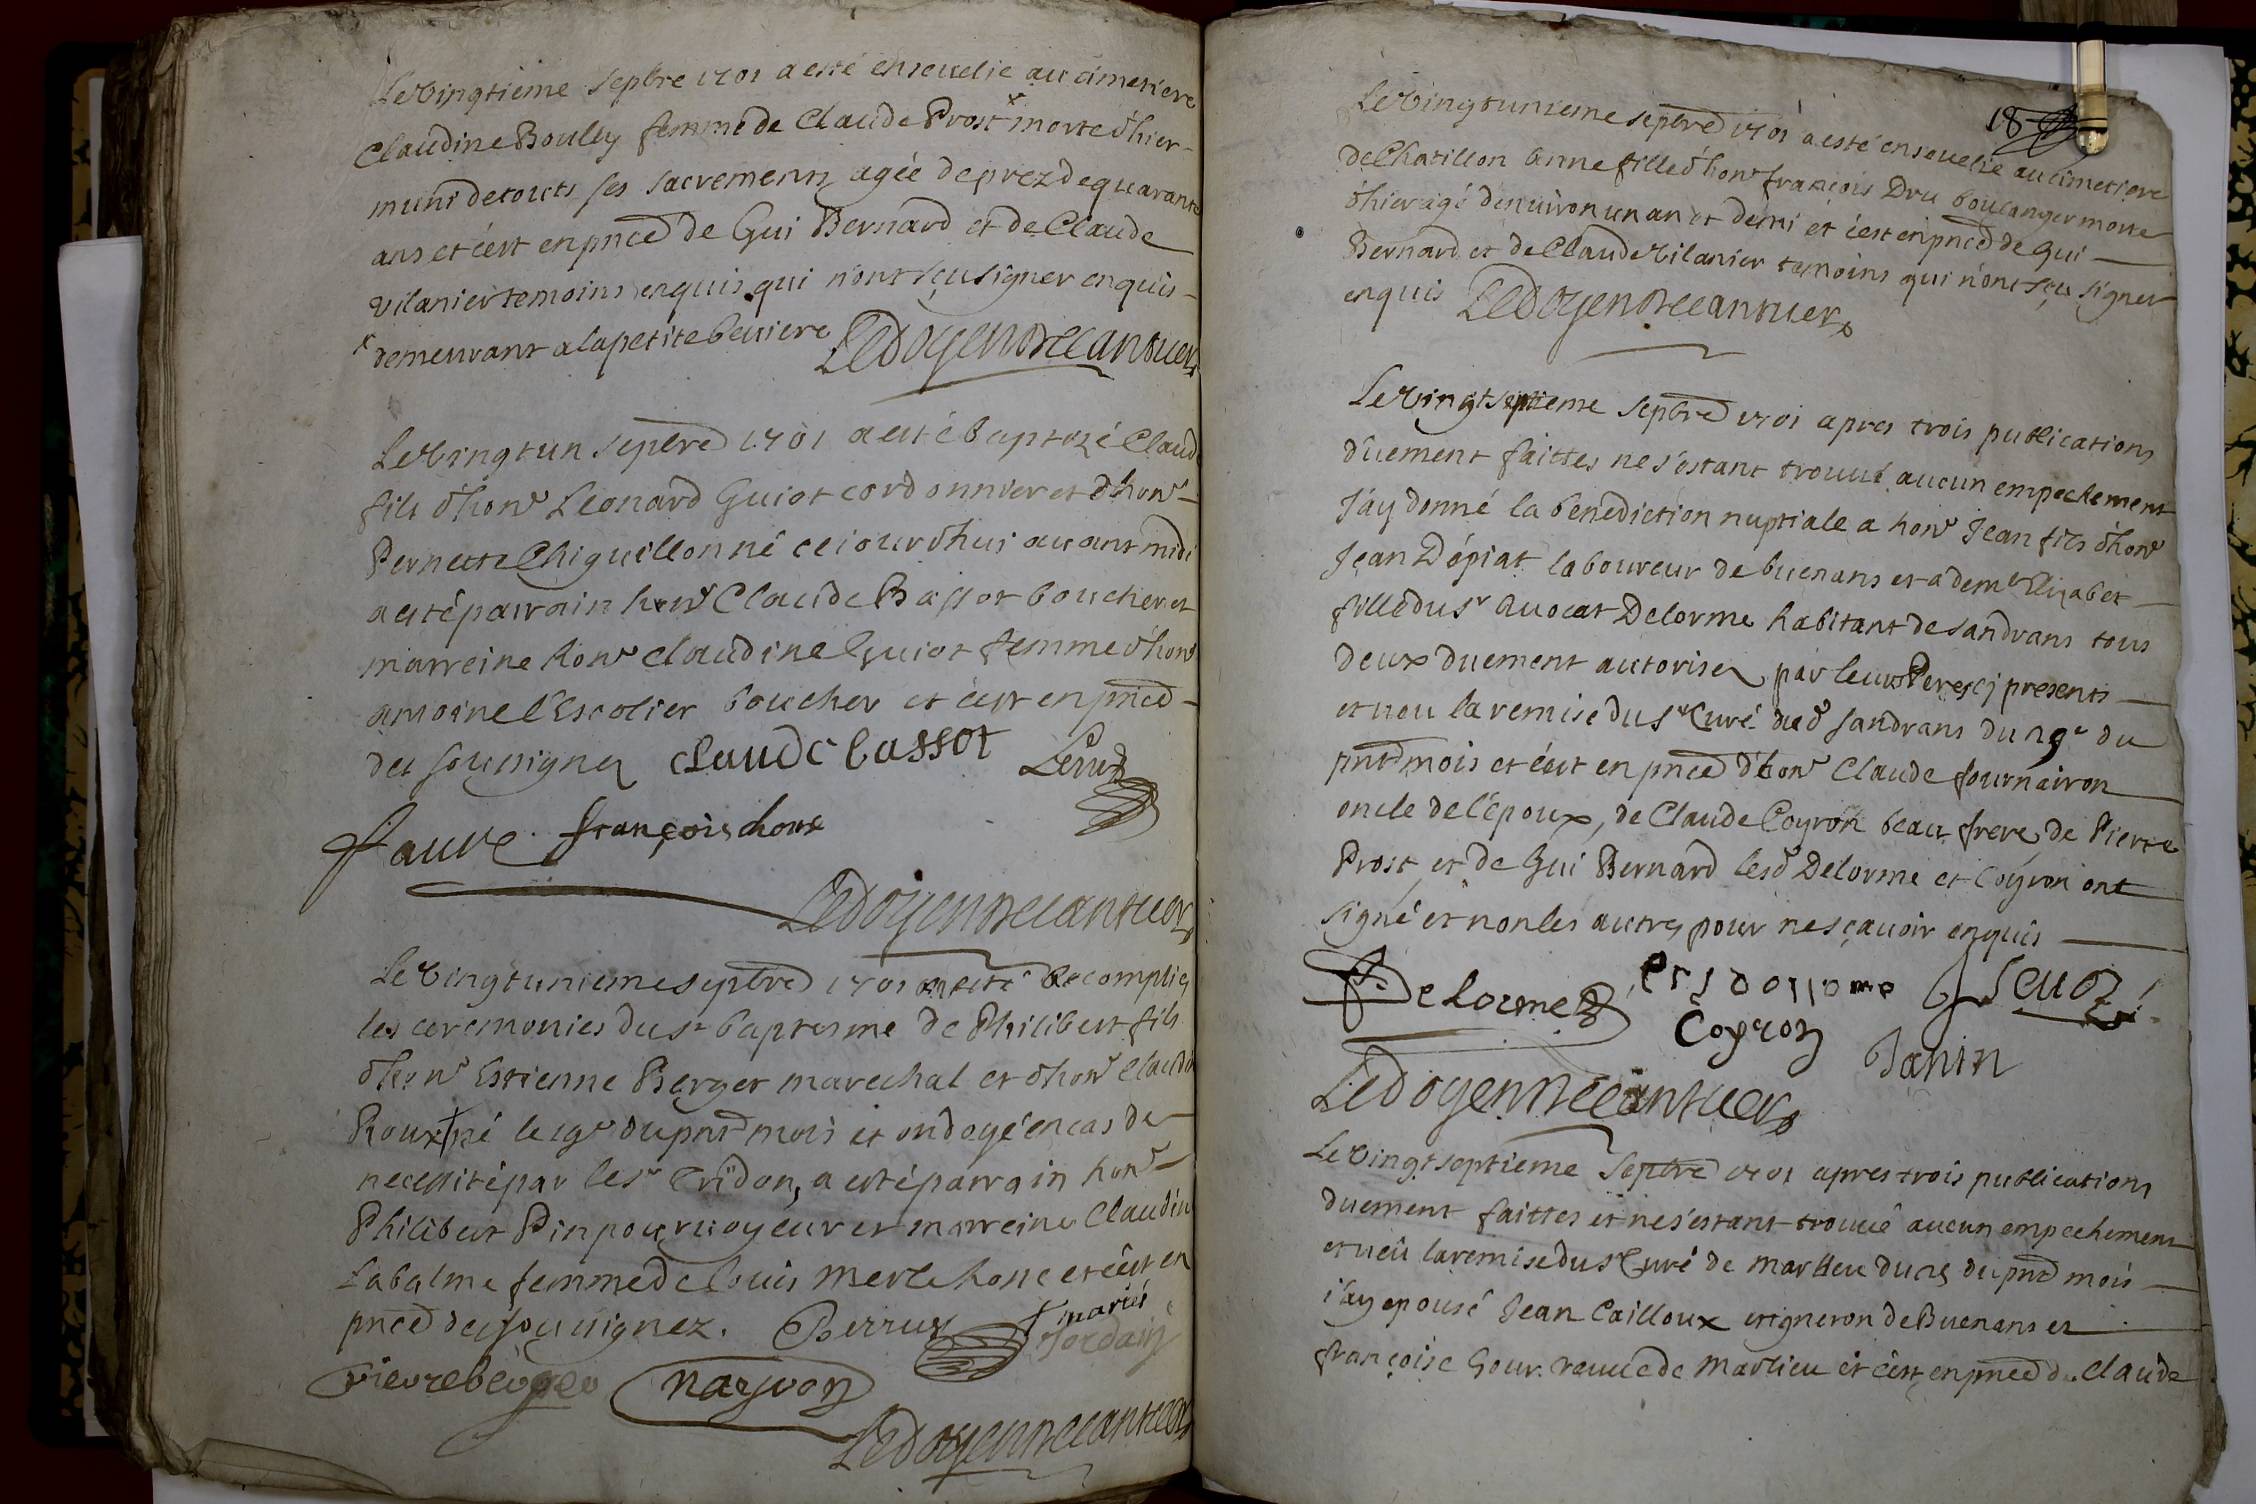 Le vingtieme sepbre 1701 a esté ensevelie au cimetiere
Claudine Boully femme de Claude Prost x morte d'hier
muni de touts ses sacrements agée de prez de quarante
ans et c'est en pnce de Gui Bernard et de Claude
vilanier temoins enquis qui n'ont sçu signer enquis
x demeurant a la petite beviere Le doyen
Le vingt un sepbre 1701 a esté baptizé Claude
fils d'hon Leonard Guiot cordonnier et d'hon
Pernette Chiguillon né cejourdhui avant midi
a esté parrain hon Claude Bassot boucher et
marreine hon Claudine Guiot femme d'hon
antoine l'Escolier boucher et c'est en pnce
des soussignez Claude bassot
faure françois
Le doyen
Le vingtunieme sepbre 1701 ont esté accomplies
les ceremonies du st baptesme de Philibert fils
d'hon Estienne Berger marechal et d'hon Claudine
Roux né le 19e du pnt mois et ondoyé en cas de
necessité par le sr Tridon, a esté parrain hon
Philibert Pin pourvoyeur et marreine Claudine
Labalme femme de Louis Merle hoste et c'est en
pnce des soussignez. Perrux + mariés
Jordain
pierre berger
Le doyen
18
Le vingtunieme sepbre 1701 a esté ensevelie au cimetiere
de Chatillon Anne fille d'hon françois Dru boulanger morte
d'hier agé d'environ un an et demi et c'est en pnce de Gui
Bernard et de Claude vilanier temoins qui n'ont sçu signer
enquis Le doyen
Le vingt septieme sepbre 1701 apres trois publications
dûement faittes ne s'estant trouvé aucun empechement
J'ay donné la benediction nuptiale a hon Jean fils d'hon
Jean Dépiat laboureur de buenans et a demle Elizabet
fille du sr Avocat Delorme habitant de sandrans tous
deux duement autorisez par leurs Peres cy presents
et veu la remise du sr Curé dud sandrans du 19e du
pnt mois et c'est en pnce d'hon Claude fournairon
oncle de l'époux, de Claude Coyron beau frere, de Pierre
Prost et de Gui Bernard lesd Delorme et Coyron ont
signé et non les autres pour ne sçavoir enquis
Delorme
Coyron Janin
Le doyen
Le vingt septieme sepbre 1701 apres trois publications
duement faittes et ne s'estant trouvé aucun empechement
et veü la remise du sr Curé de marlieu du 25 du pnt mois
j'ay epousé Jean Cailloux vigneron de Buenans et
françoise Gour veuve de marlieu et c'est en pnce de Claude